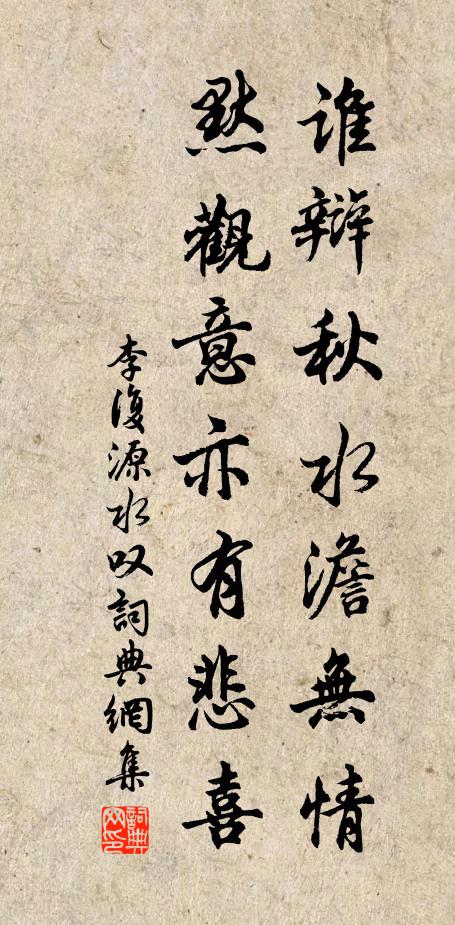 誰辯秋水澹無情
默觀意亦有悲喜
李復源水叹詞典網集
詞典网印